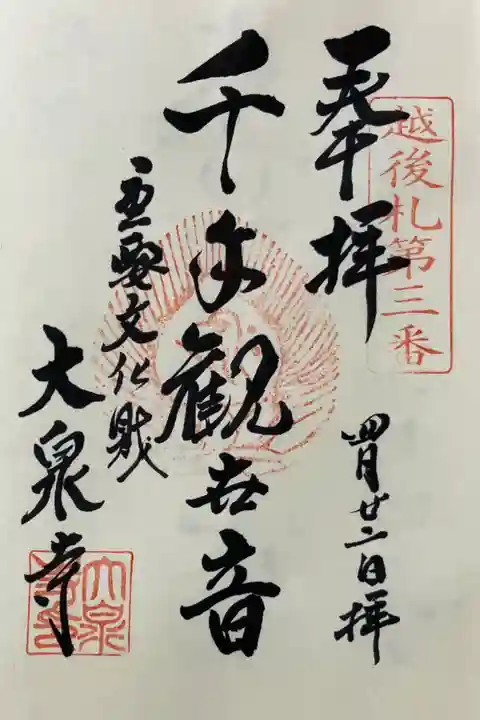 越後札第三番
奉拝
四月廿二日拝
千手観世音
重要文化財
大泉寺